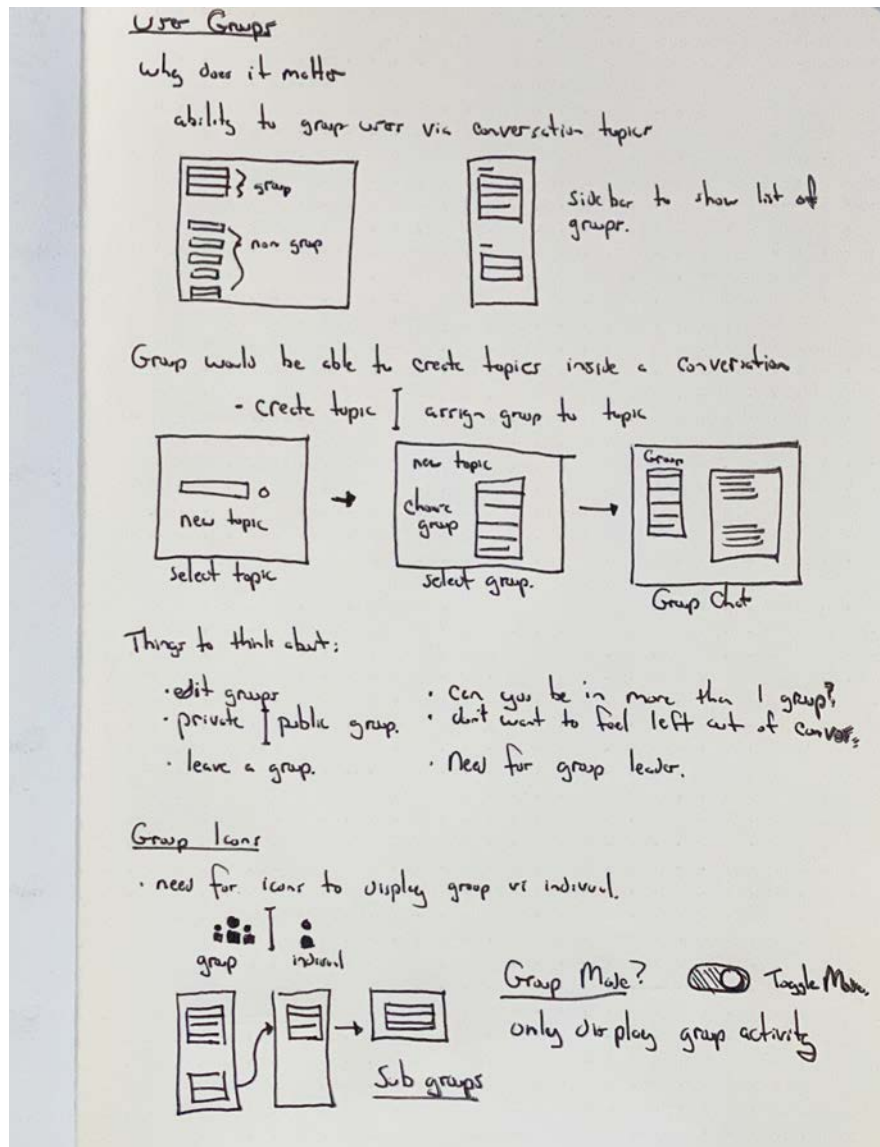 User Groups
Why does it matter
ability to group users via conversation topics
group
non group
Side bar to show list of
groups.
Group would be able to create topics inside a conversation
- create topic | assign group to topic
new topic
select topic
new topic
choose
group
select group.
Group
Group Chat
Things to think about:
· edit groups
· private | public group.
· leave a group.
· Can you be in more than 1 group?
· don't want to feel left out of convos.
· Need for group leader.
Group Icons
· need for icons to display group vs indivual.
group
indivual
Group Mode?
Toggle Mode.
only display group activity
Sub groups